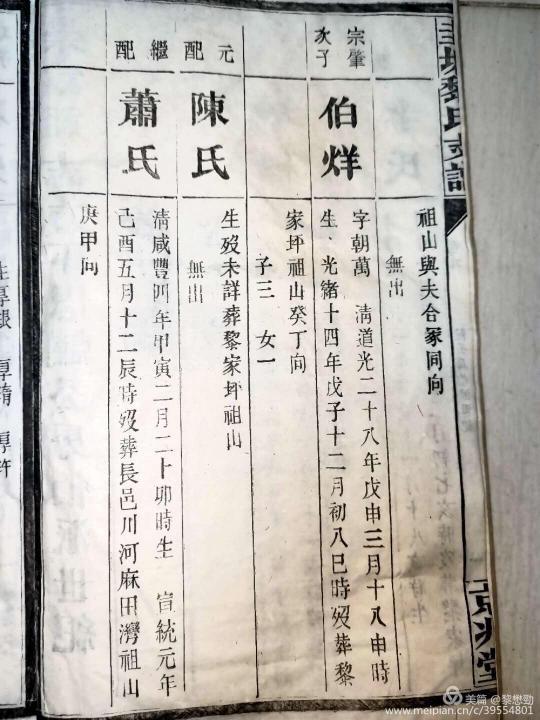 黎氏支譜
京兆堂
祖山與夫合冢同向
無出
宗肇
次子
伯烊
字朝萬 清道光二十八年戊申三月十八申時
生光緒十四年戊子十二月初八巳時歿葬黎
家坪祖山癸丁向
子三 女一
元配
陳氏
生歿未詳葬黎家坪祖山
無出
繼配
蕭氏
清咸豐四年甲寅二月二十卯時生 宣統元年
己酉五月十二辰時歿葬長邑川河麻田灣祖山
庚甲向
美篇 @黎懋勁
www.meipian.cn/c/39554801